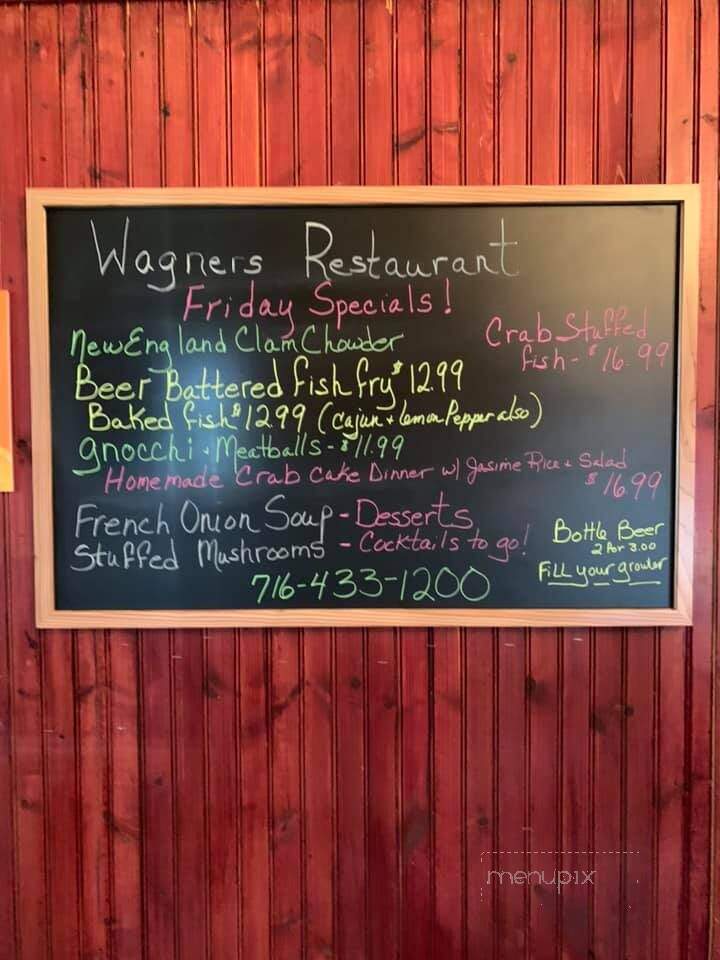 Wagners Restaurant
Friday Specials!
New England Clam Chowder
Crab Stuffed
fish - $16.99
Beer Battered fish fry $12.99
Baked fish $12.99 (Cajun + lemon Pepper also)
gnocchi + Meatballs - $11.99
Homemade Crab Cake Dinner w/ Jasime Rice + Salad
$16.99
French Onion Soup - Desserts
Stuffed Mushrooms - Cocktails to go!
Bottle Beer
2 for 3.00
Fill your growler
716-433-1200
menupix